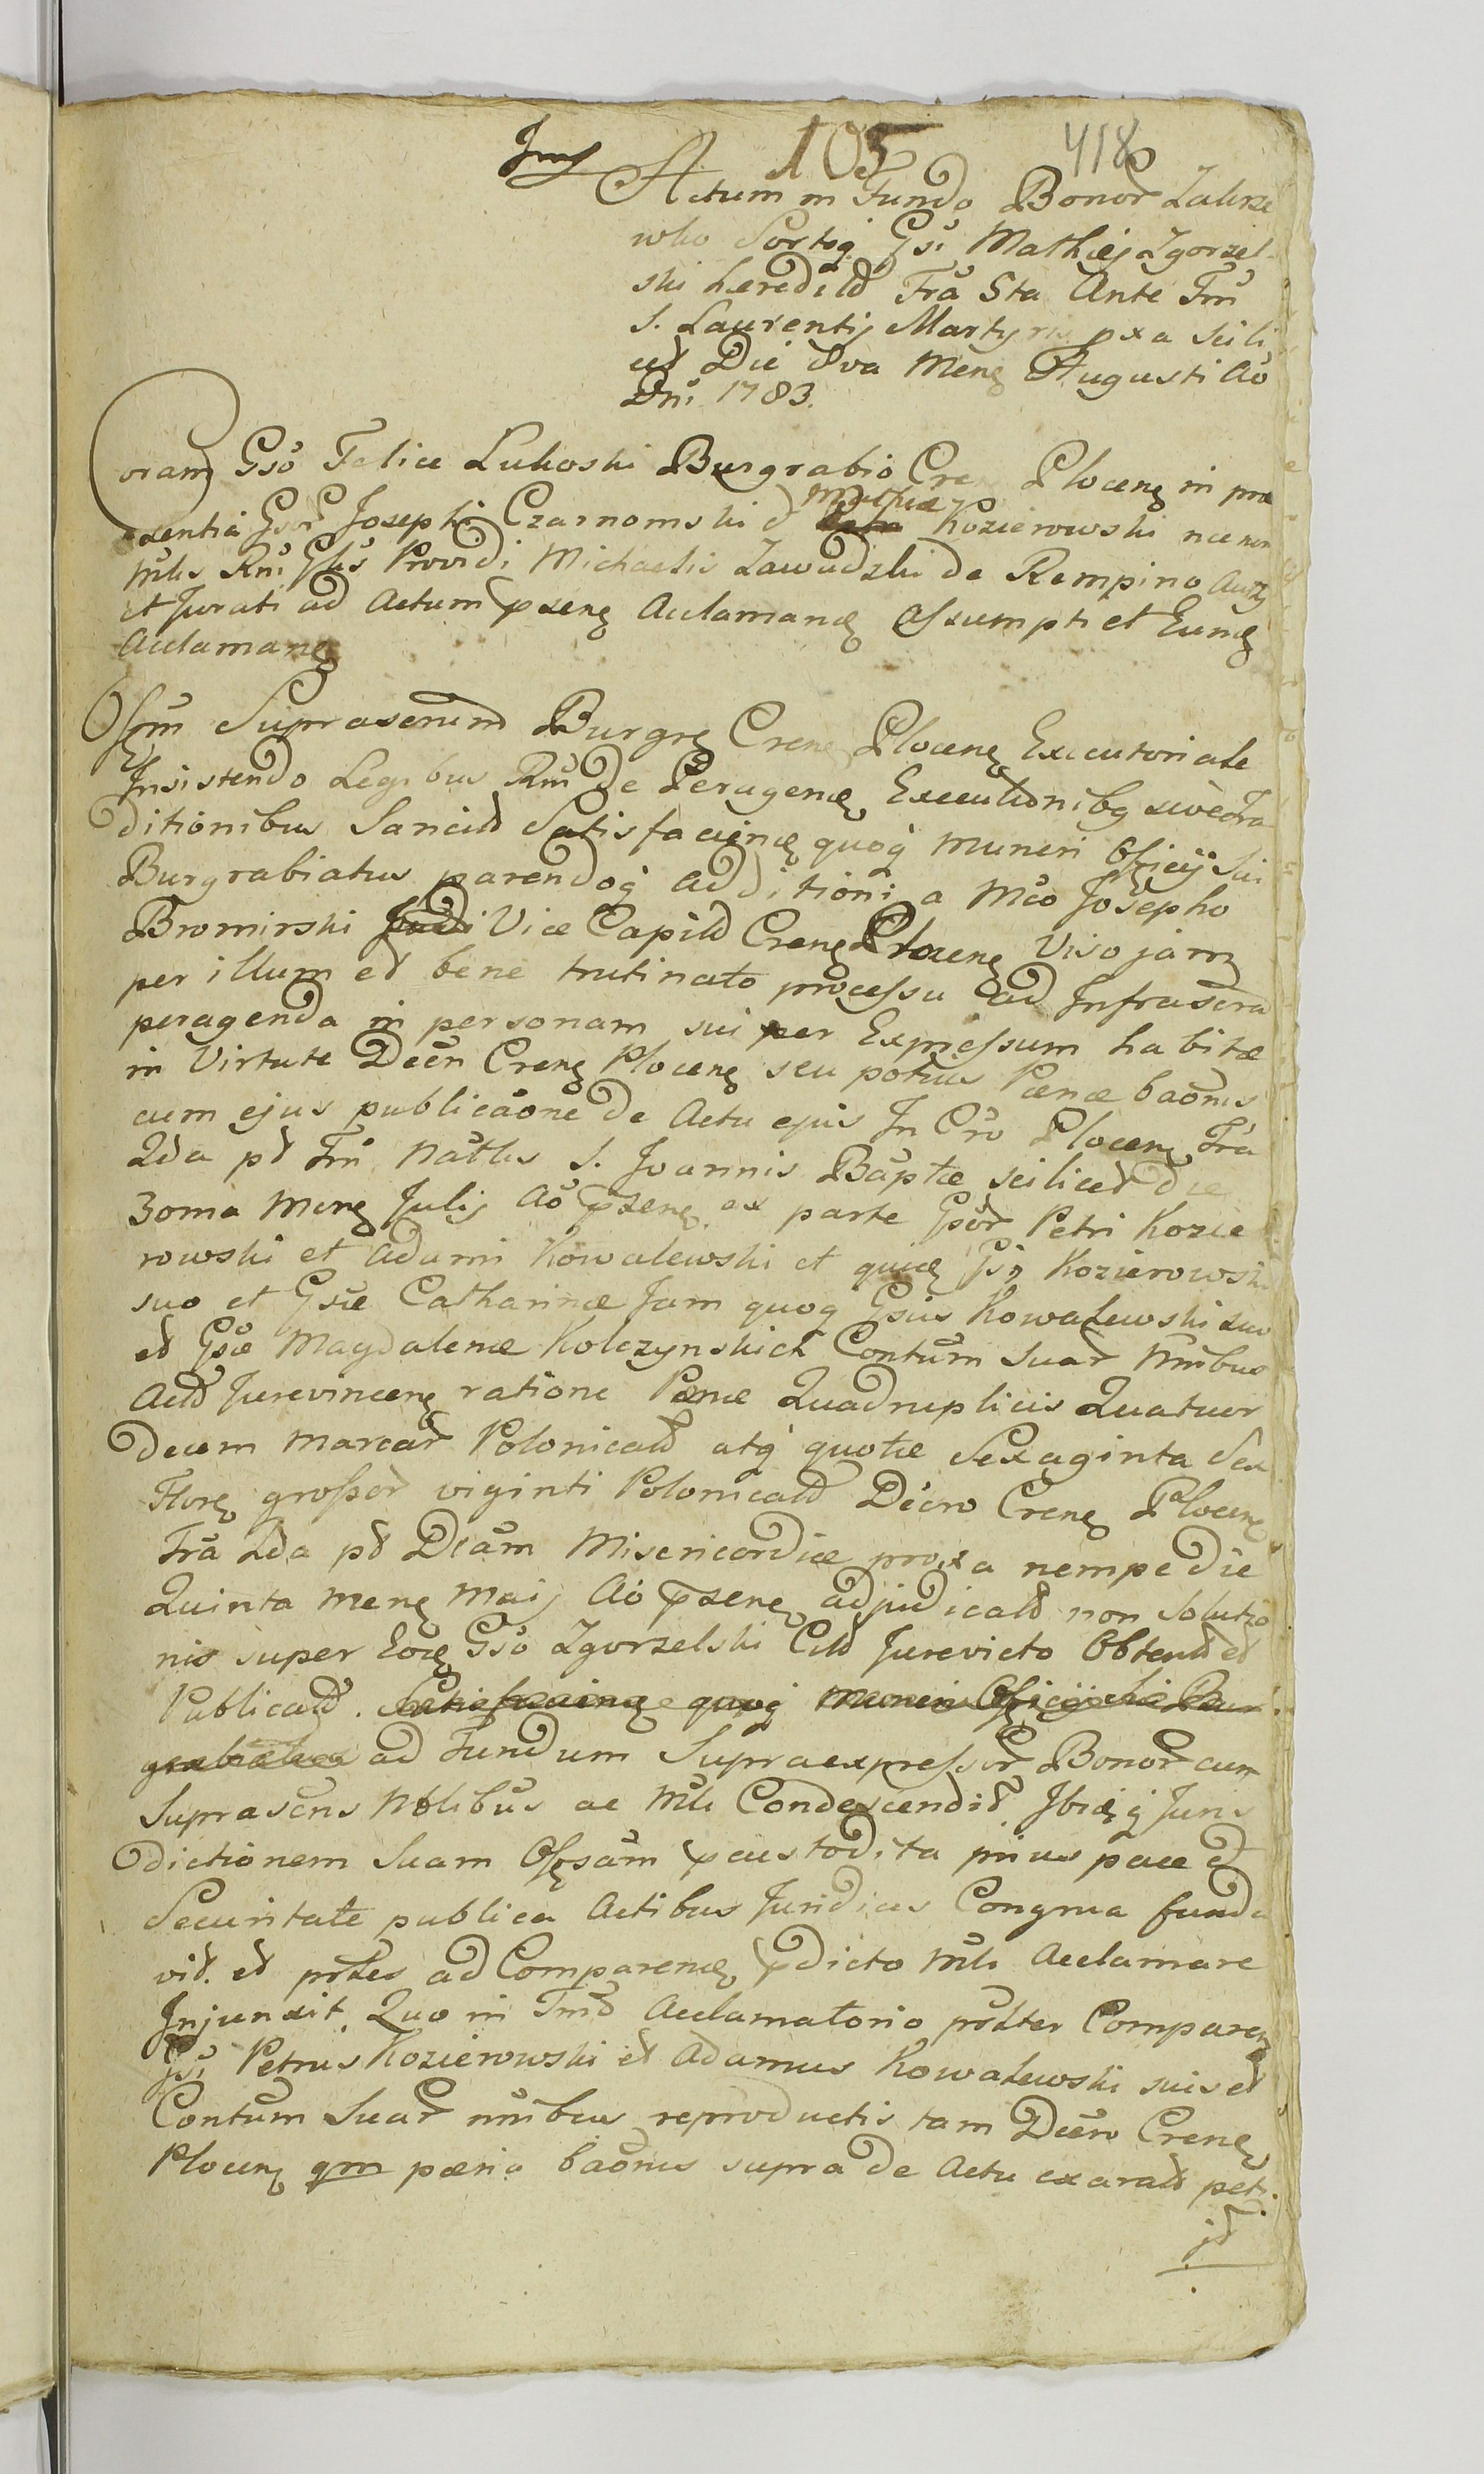 105 418
Actum in Fundo Bonor Zakrze
wko Sortsq Gsi Mathiej Zgorzel
ski hæredild Fra Sta Ante Fm
S. Laurentij Martyris pxa scili
cet Die 8va Mens Augusti Ao
Dni 1783.
Coram Gso Felice Lukoski Burgrabio Cren Plocens in præ
sentia Gsor Josephi Czarnomski et Mathiæ Kozierowski necnon
Mlis Rni Glis Providi Michaelis Zawadzki de Rempino Autz
et Jurati ad Actum psens Acclamans Assumpti et Eund
Acclamans
Offm Suprascrium Burgre Crens Plocens Executoriale
Insistendo Legibus Rni De Peragens Executionibq sive Tra
ditionibus Sancild Satisfaciens quoq muneri Officij Sui
Burgrabiatus parendoq additioni a Mco Josepho
Bromirski Vice Capild Crens Plocens Viso jam
per illum et bene trutinato processu ad Infrascra
peragenda in personam sui per Expressum habitæ
in Virtute Decen Crens Plocens seu potius Pænæ baonis
cum ejus publicaone de Actu ejus In Cro Plocens Fra
2da pt Fm Natlis S. Joannis Baptæ scilicet die
30ma Mens Julij Ao psens ex parte Gsor Petri Kozie
rowski et Adami Kowalewski et quidem Gsi Kozierowski
suo et Gsæ Catharinæ Jam quoq Gsius Kowalewski suo
et Gsæ Magdalenæ Kolczynskich Contum Suar Nnibus
Actd Jurevincens ratione Pænæ Quadruplicis Quatuor
decem marcar Polonicald atq quotæ Sexaginta Sex
Flors grossor viginti Polonicald Decro Crens Plocens
Fra 2da pt Dcam Misericordiæ proxa nempe die
Quinta mens Maij Ao psens adjudicald non Solutio
nis super Eod Gso Zgorzelski Citd Jurevicto Obtentd et
Publicald. Satisfaciens quoq muneri Officij sui Bur
grabiatus ad Fundum Supraexpressor Bonor cum
Suprascris Nblibus ac Mli Condescendit Ibiqq Juris
dictionem Suam Offsam pcustodita prius pace et
Securitate publica Actibus Juridicis Congrua funda
vit. et prtes ad Comparend pdicto Mli Acclamare
Injunxit. Quo in Tmo Acclamatorio prlter Comparens
Gsi Petrus Kozierowski et Adamus Kowalewski suis et
Contum Suar nnibus reproductis tam Decro Crens
Plocens qm pæna baonis supra de Actu exarald peti.
it